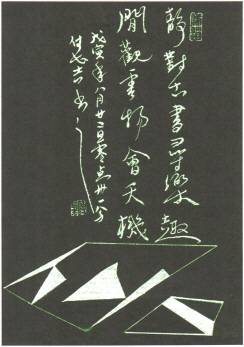 靜對古書尋樂趣
閒觀雲物會天機
戊寅年八月廿二日零点卅一分